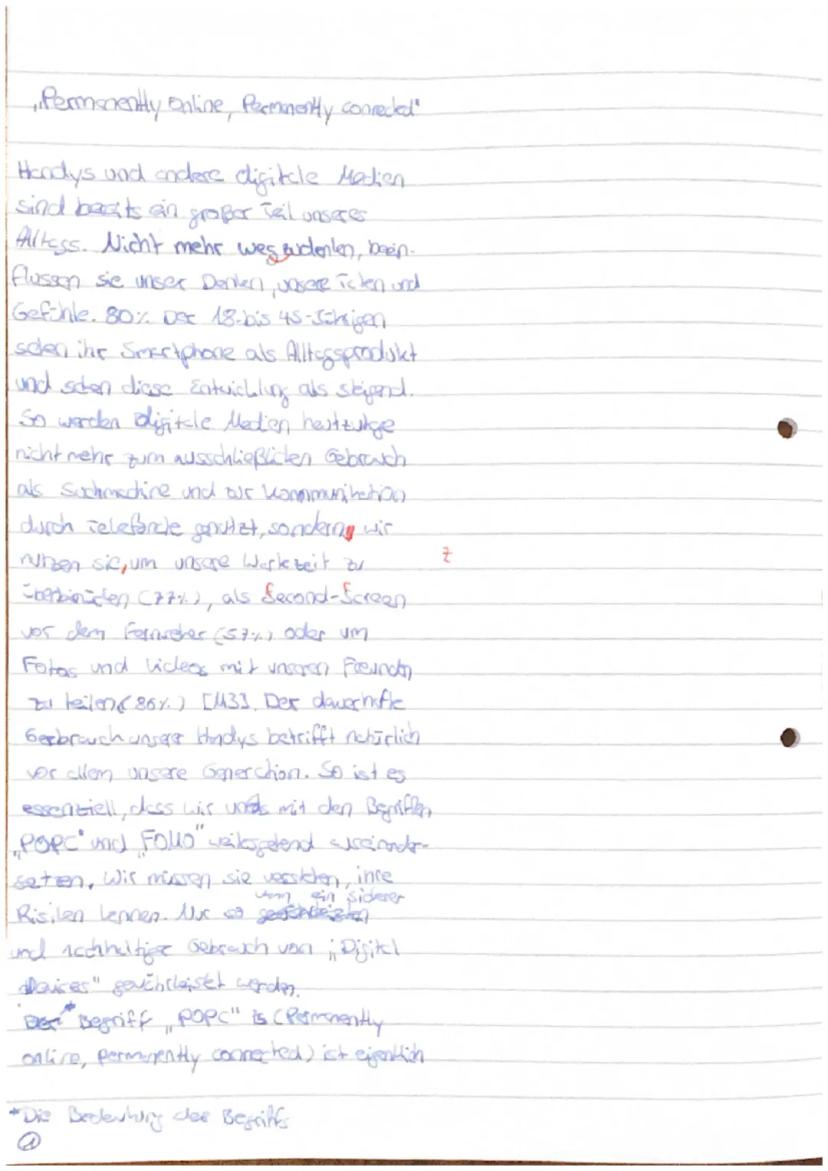 „Permanently online, Permanently connected"
Handys und andere digitale Medien
sind bereits ein großer Teil unseres
Alltags. Nicht mehr wegzudenken, beein-
flussen sie unser Denken, unsere Taten und
Gefühle. 80% Der 18-bis 45-Jährigen
sehen ihr Smartphone als Alltagsprodukt
und sehen diese Entwicklung als steigend.
So werden digitale Medien heutzutge
nicht mehr zum ausschließlichen Gebrauch
als Suchmachine und zur Kommunikation
durch Telefonate genutzt, sondern wir
nutzen sie, um unsere Wartezeit zu
z
überbrücken (77%), als Second-Screen
vor dem Fernseher (57%) oder um
Fotos und Videos mit unseren Freunden
zu teilen (86%) [M3]. Der dauerhafte
Gebrauch unserer Handys betrifft natürlich
vor allem unsere Generation. So ist es
essentiell, dass wir uns mit den Begriffen
„POPC" und „FOMO" weitsgehend auseinander-
setzen. Wir müssen sie verstehen, ihre
Risiken kennen. Nur so kann ein sicherer
und nachhaltiger Gebrauch von „Digital
Devices" gewährleistet werden.
* Begriff „POPC" (Permanently
online, permanently connected) ist eigentlich
*Die Bedeutung des Begriffs
1